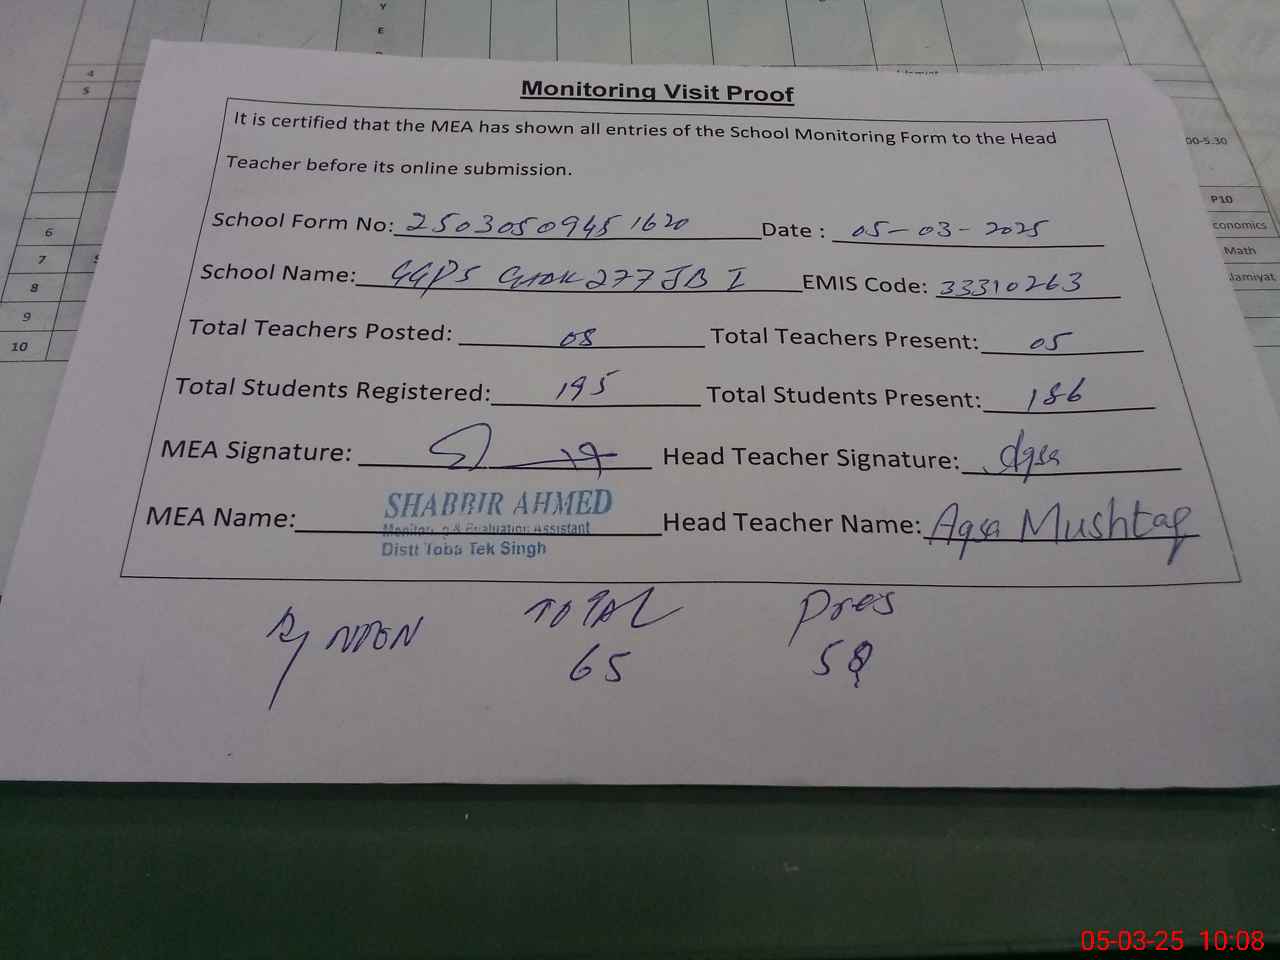 Y
E
4
5
6
7
8
9
10
00-5.30
P10
conomics
Math
Jamiyat
Monitoring Visit Proof
It is certified that the MEA has shown all entries of the School Monitoring Form to the Head
Teacher before its online submission.
School Form No: 2503050945 1620 Date : 05-03-2025
School Name: GGPS 277 JB I EMIS Code: 33310263
Total Teachers Posted: 08 Total Teachers Present: 05
Total Students Registered: 195 Total Students Present: 186
MEA Signature: Head Teacher Signature: Aqsa
MEA Name: SHABBIR AHMED Head Teacher Name: Aqsa Mushtaq
Monitoring & Evaluation Assistant
Distt Toba Tek Singh
TOTAL Pres
65
05-03-25 10:08